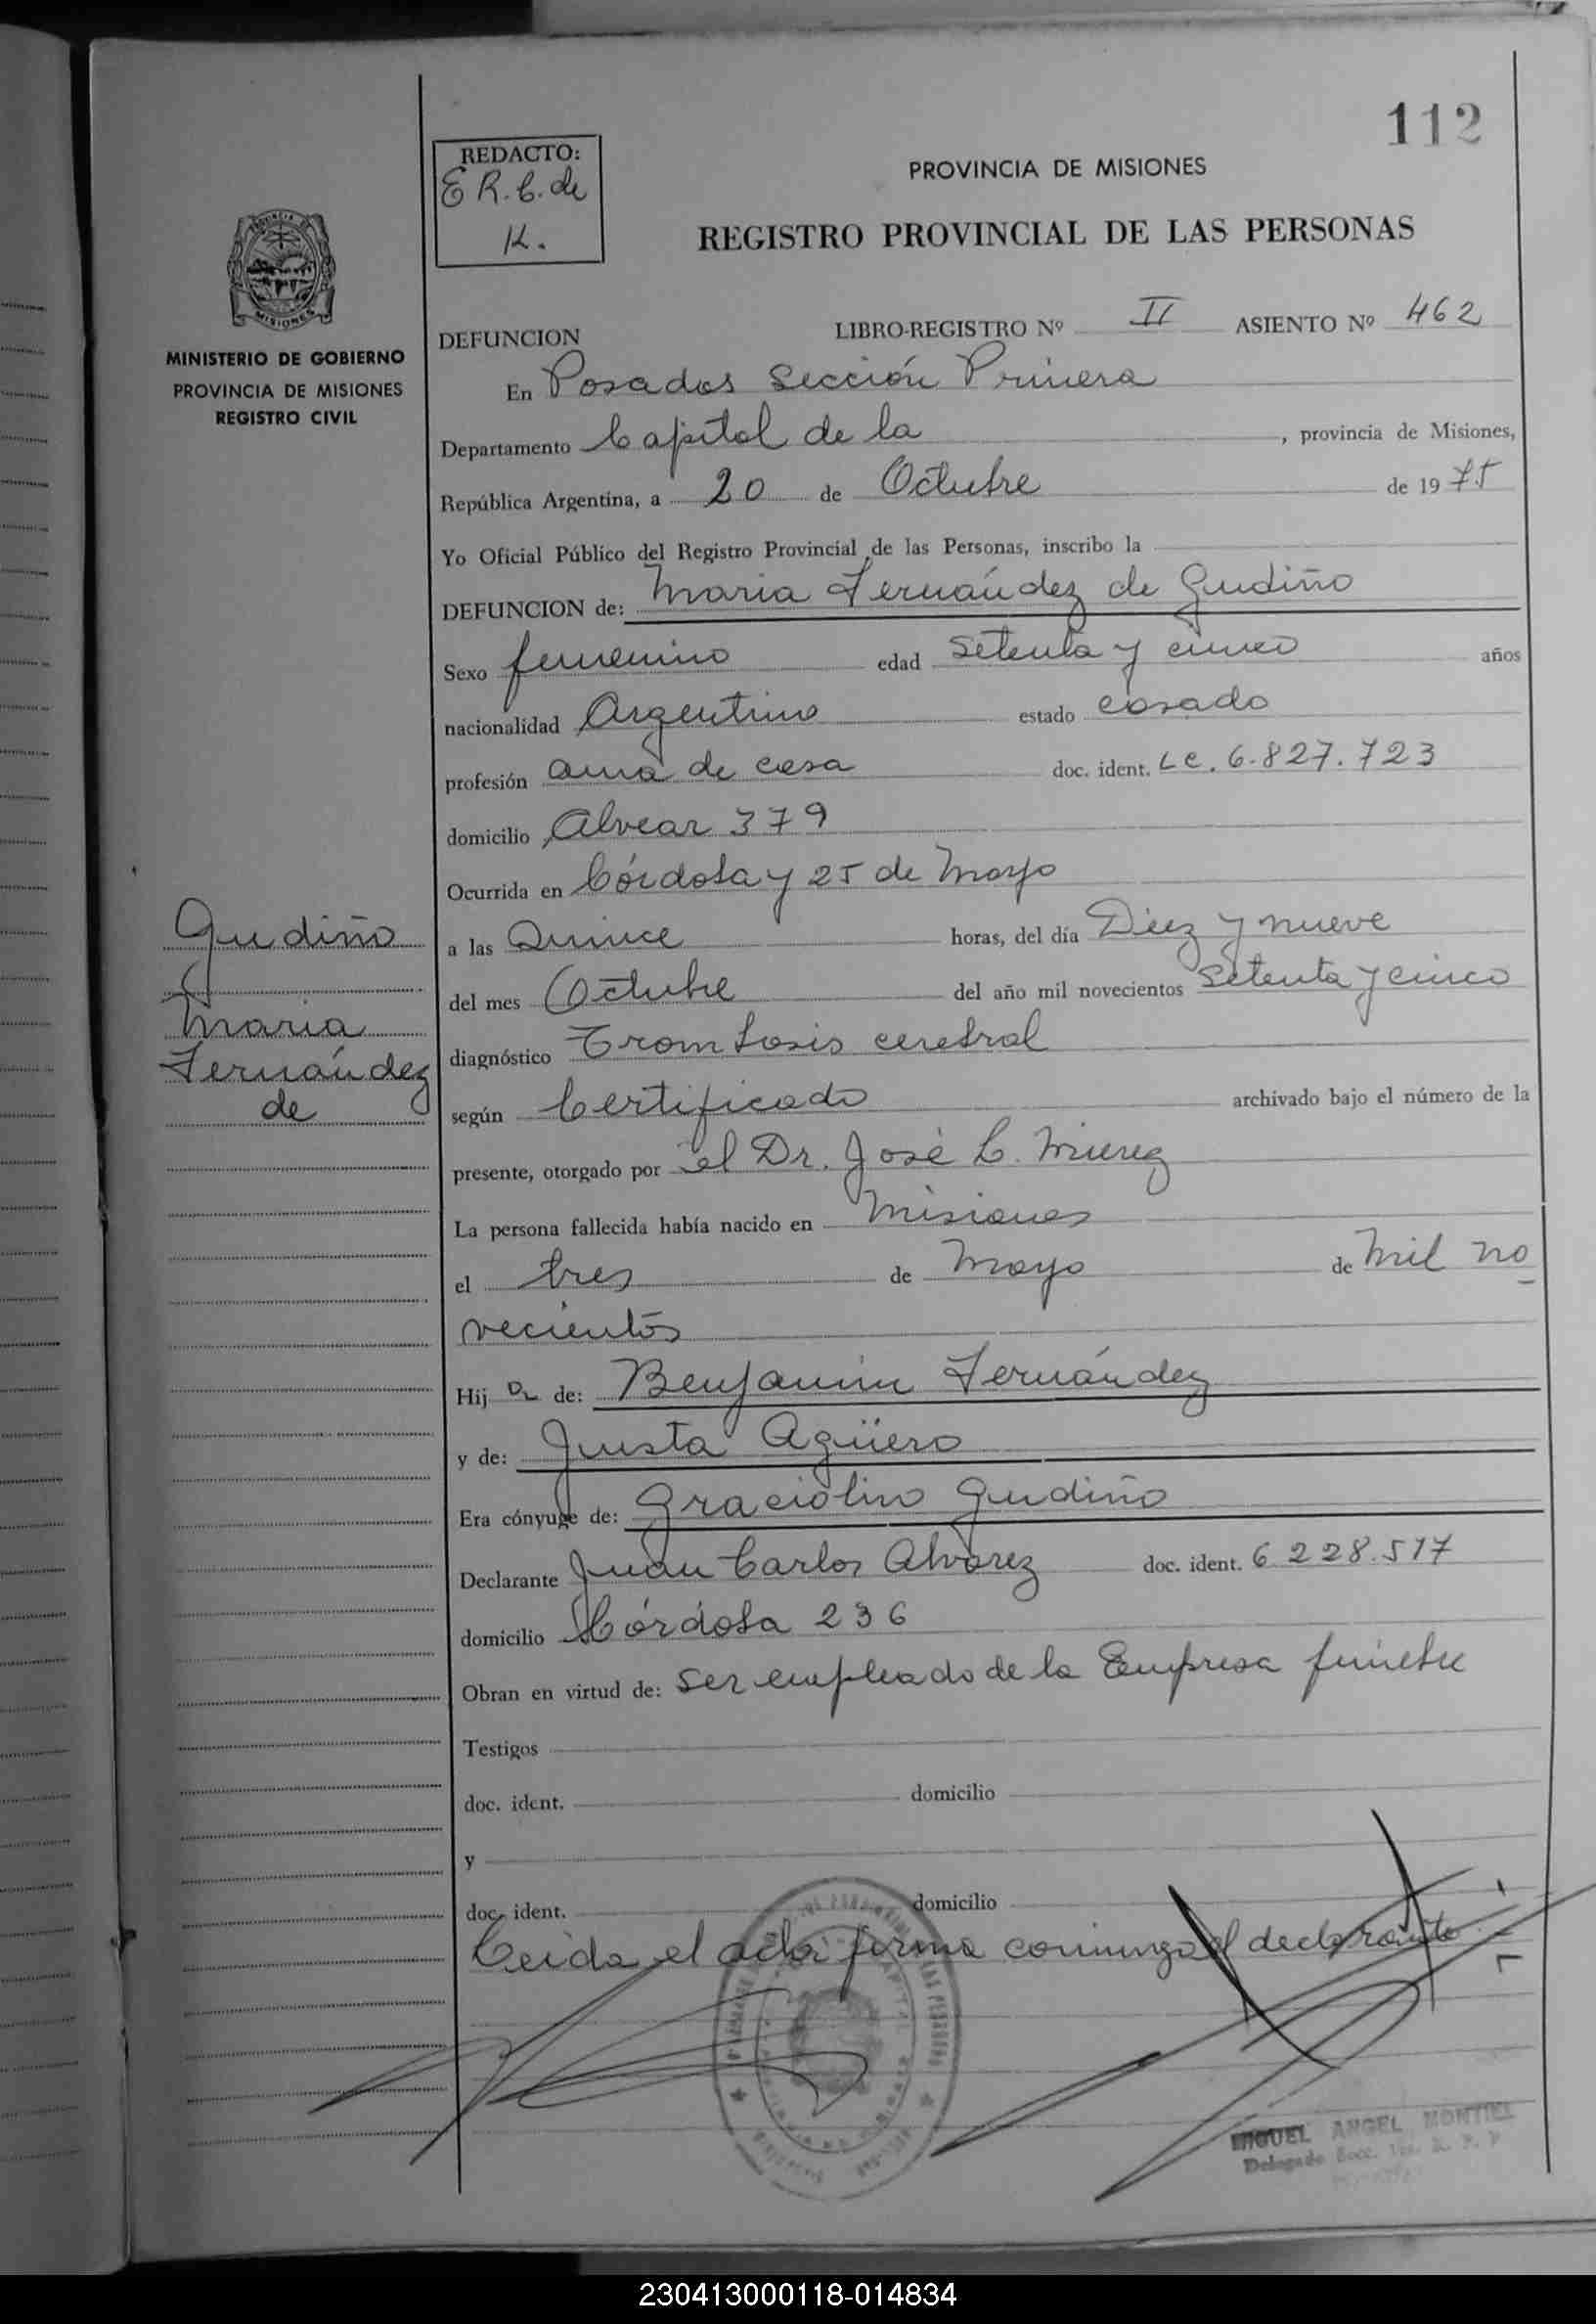 112
REDACTO:
E R. C. de
K.
PROVINCIA DE MISIONES
REGISTRO PROVINCIAL DE LAS PERSONAS
MISIONES
MINISTERIO DE GOBIERNO
PROVINCIA DE MISIONES
REGISTRO CIVIL
DEFUNCION LIBRO-REGISTRO Nº II ASIENTO Nº 462
En Posadas Sección Primera
Departamento Capital de la , provincia de Misiones,
República Argentina, a 20 de Octubre de 1975
Yo Oficial Público del Registro Provincial de las Personas, inscribo la
DEFUNCION de: Maria Fernández de Gudiño
Sexo femenino edad setenta y cinco años
nacionalidad Argentina estado casada
profesión ama de casa doc. ident. LC. 6.827.723
domicilio Alvear 379
Ocurrida en Córdoba y 25 de Mayo
a las Quince horas, del día Diez y nueve
del mes Octubre del año mil novecientos setenta y cinco
diagnóstico Trombosis cerebral
según Certificado archivado bajo el número de la
presente, otorgado por el Dr. José C.
La persona fallecida había nacido en Misiones
el tres de Mayo de Mil no
vecientos
Hij a de: Benjamin Fernández
y de: Justa Agüero
Era cónyuge de: Graciolino Gudiño
Declarante Juan Carlos Alvarez doc. ident. 6 228.517
domicilio Córdoba 236
Obran en virtud de: ser empleado de la Empresa fúnebre
Testigos
doc. ident. domicilio
y
doc. ident. domicilio
Leida el acta firma conmigo el declarante
Gudiño
Maria
Fernández
de
MIGUEL ANGEL MONTIEL
Delegado Secc. 1ra. R. P. P
230413000118-014834